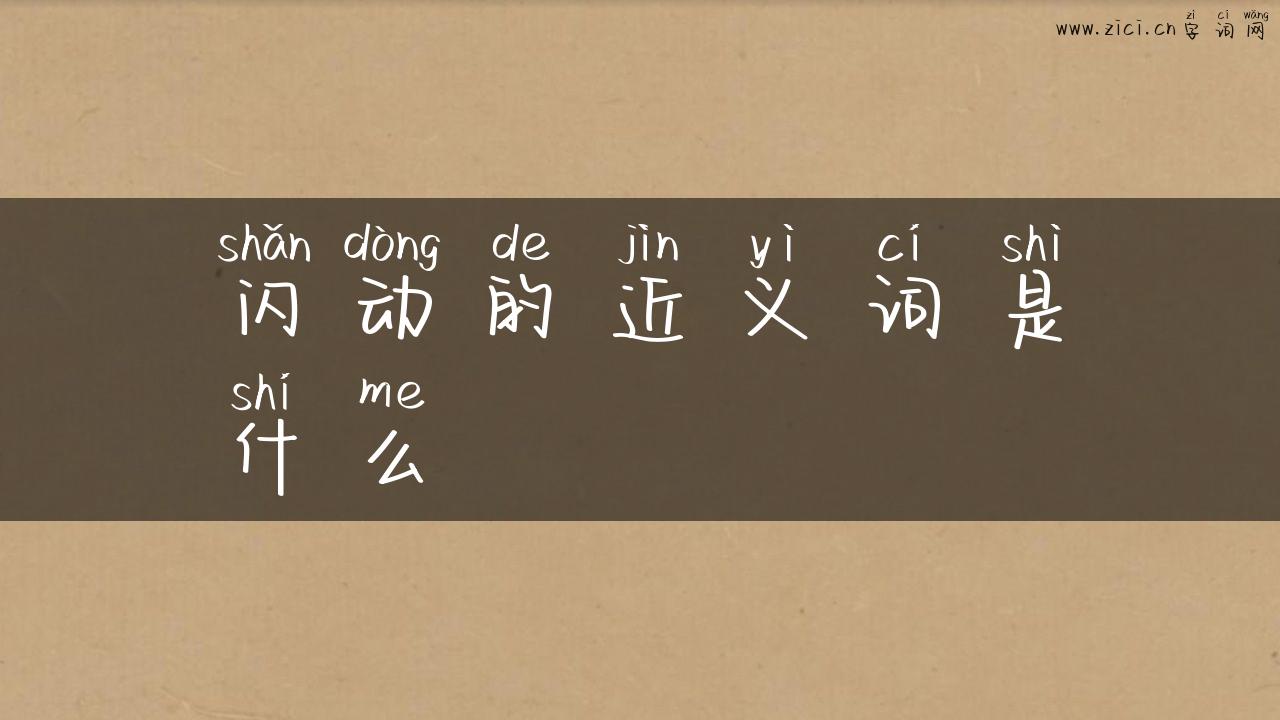 zì cí wǎng
www.zici.cn 字词网
shǎn dòng de jìn yì cí shì
闪动的近义词是
shí me
什么